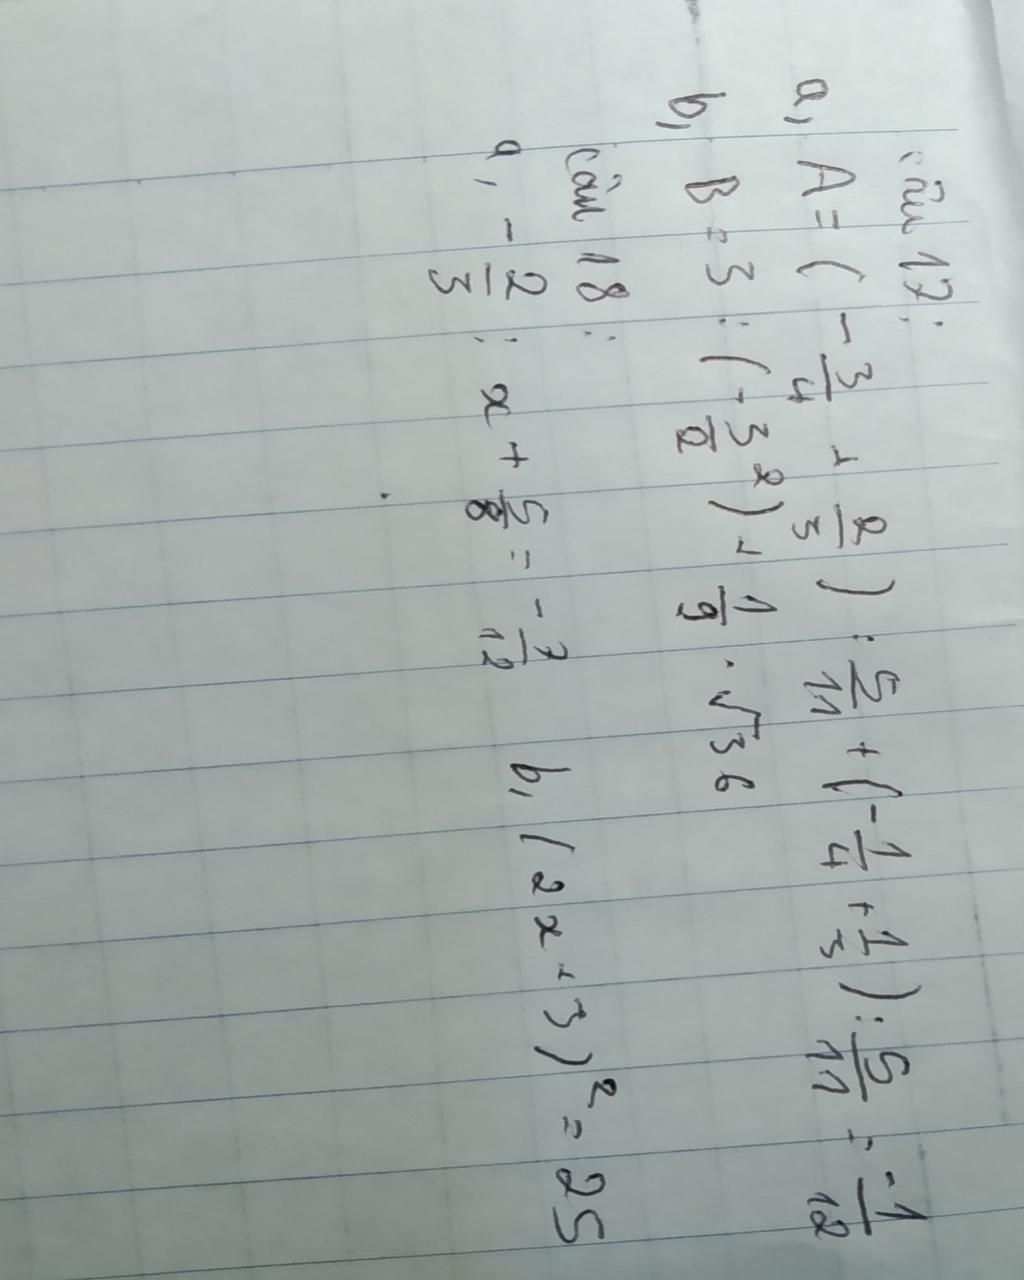 Câu 17:
a, A = ( -3/4 + 2/3 ) : 5/11 + ( -1/4 + 1/3 ) : 5/11 = -1/12
b, B = 3 : ( -3/2 )² + 1/9 . √36
Câu 18:
a, -2/3 : x + 5/8 = -7/12 b, ( 2x + 3 )² = 25